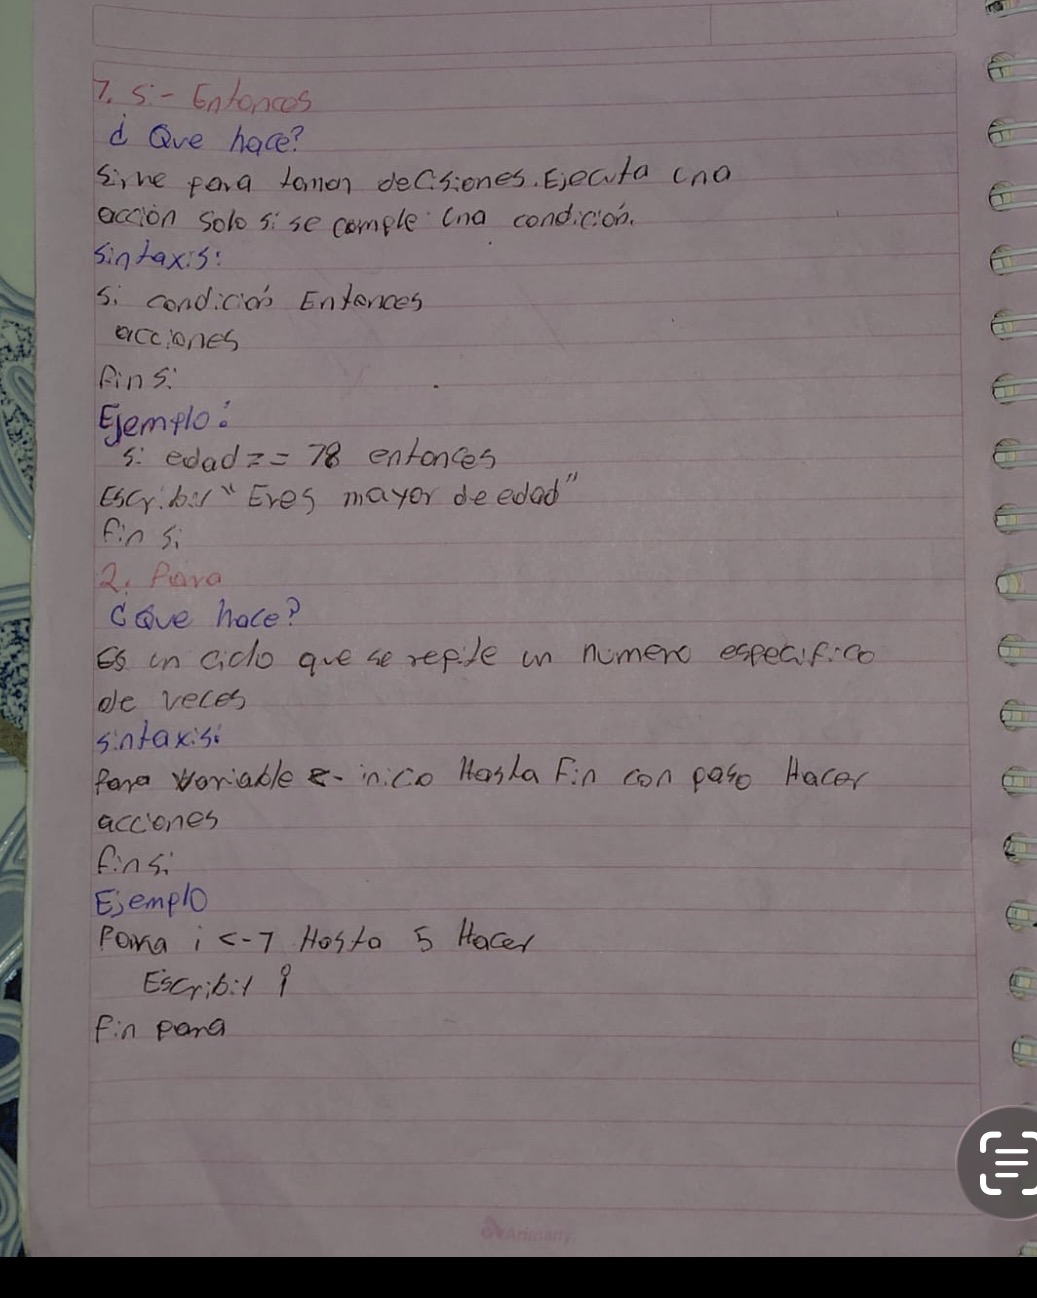 1. Si - Entonces
¿Que hace?
Sirve para tomar decisiones. Ejecuta una
acción solo si se cumple una condición.
Sintaxis:
Si condición Entonces
acciones
fin si
Ejemplo:
Si edad == 18 entonces
Escribir "Eres mayor de edad"
fin si
2. Para
¿Que hace?
Es un ciclo que se repite un numero especifico
de veces
sintaxis:
Para variable <- inicio Hasta Fin con paso Hacer
acciones
fin si
Ejemplo
Para i <- 1 Hasta 5 Hacer
Escribir i
fin para
Arimany